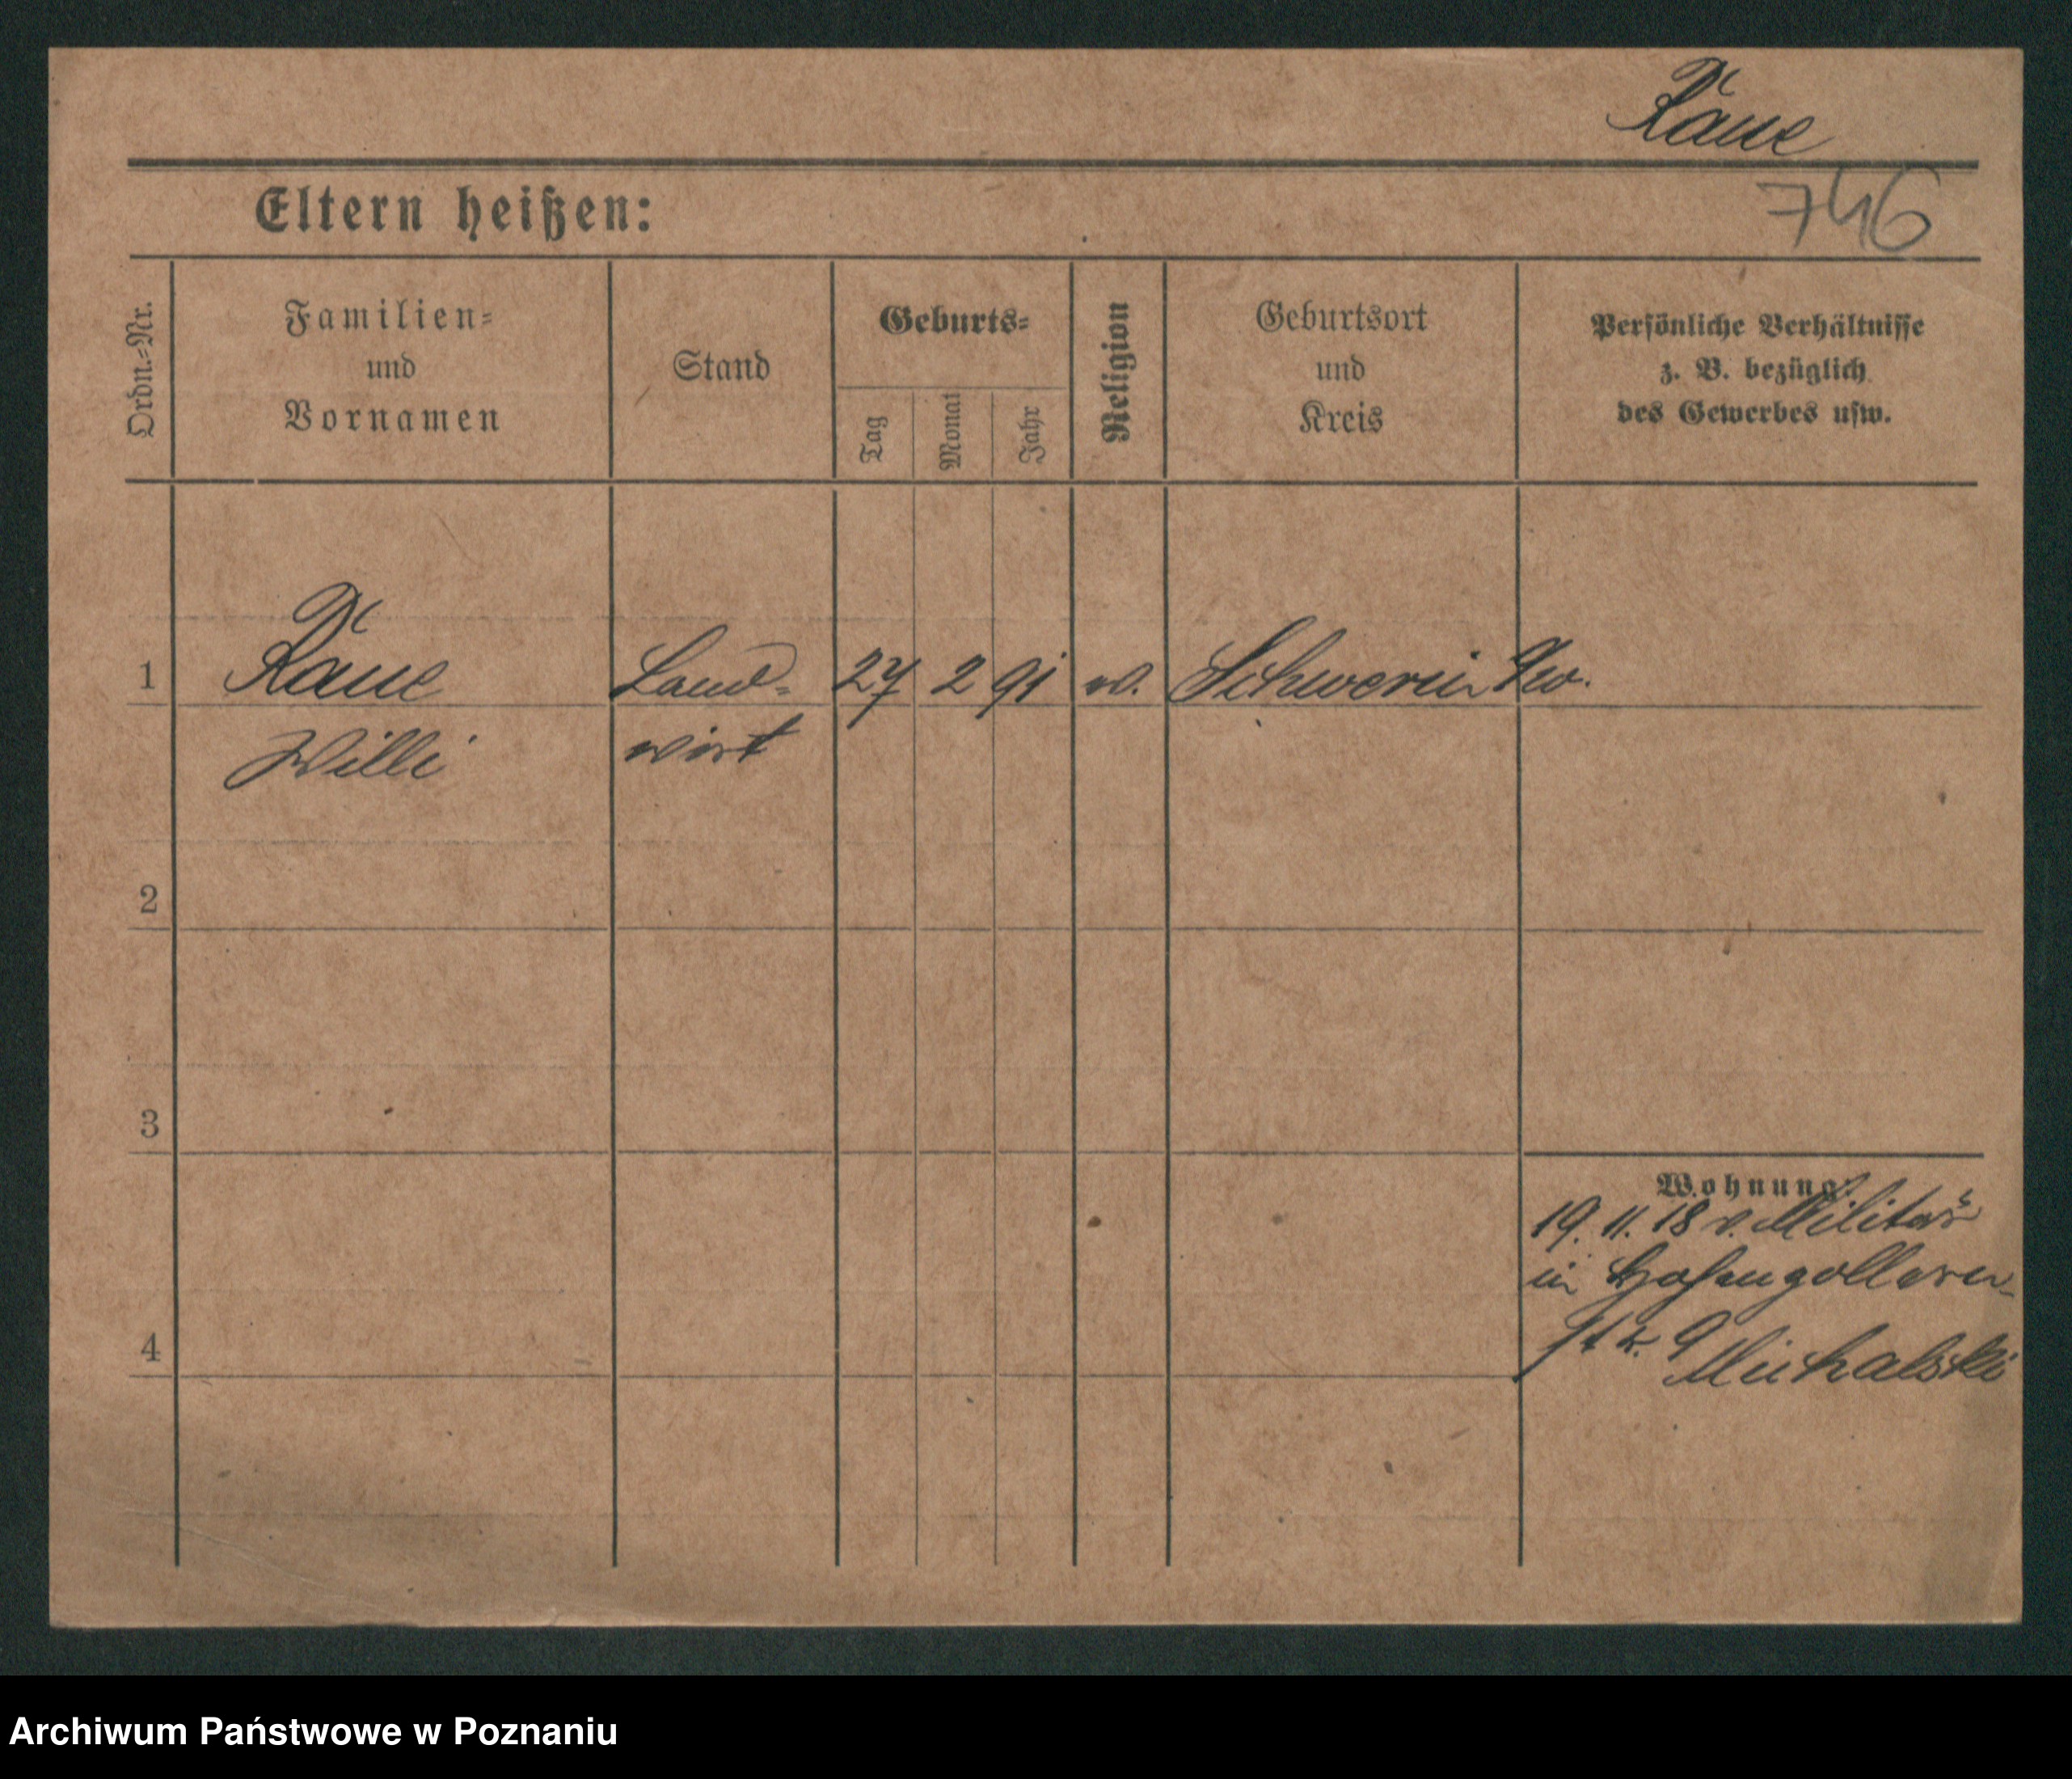 Räue
Eltern heißen:
746
Ordn.-Nr.
Familien-
und
Vornamen
Stand
Geburts-
Tag
Monat
Jahr
Religion
Geburtsort
und
Kreis
Persönliche Verhältnisse
z. B. bezüglich
des Gewerbes usw.
1 Räue Land- 27 2 91 ev. Schwerin
Willi wirt
2
3
4
Wohnung
19. 11. 18 v. Militär
in
Michalski
Archiwum Państwowe w Poznaniu